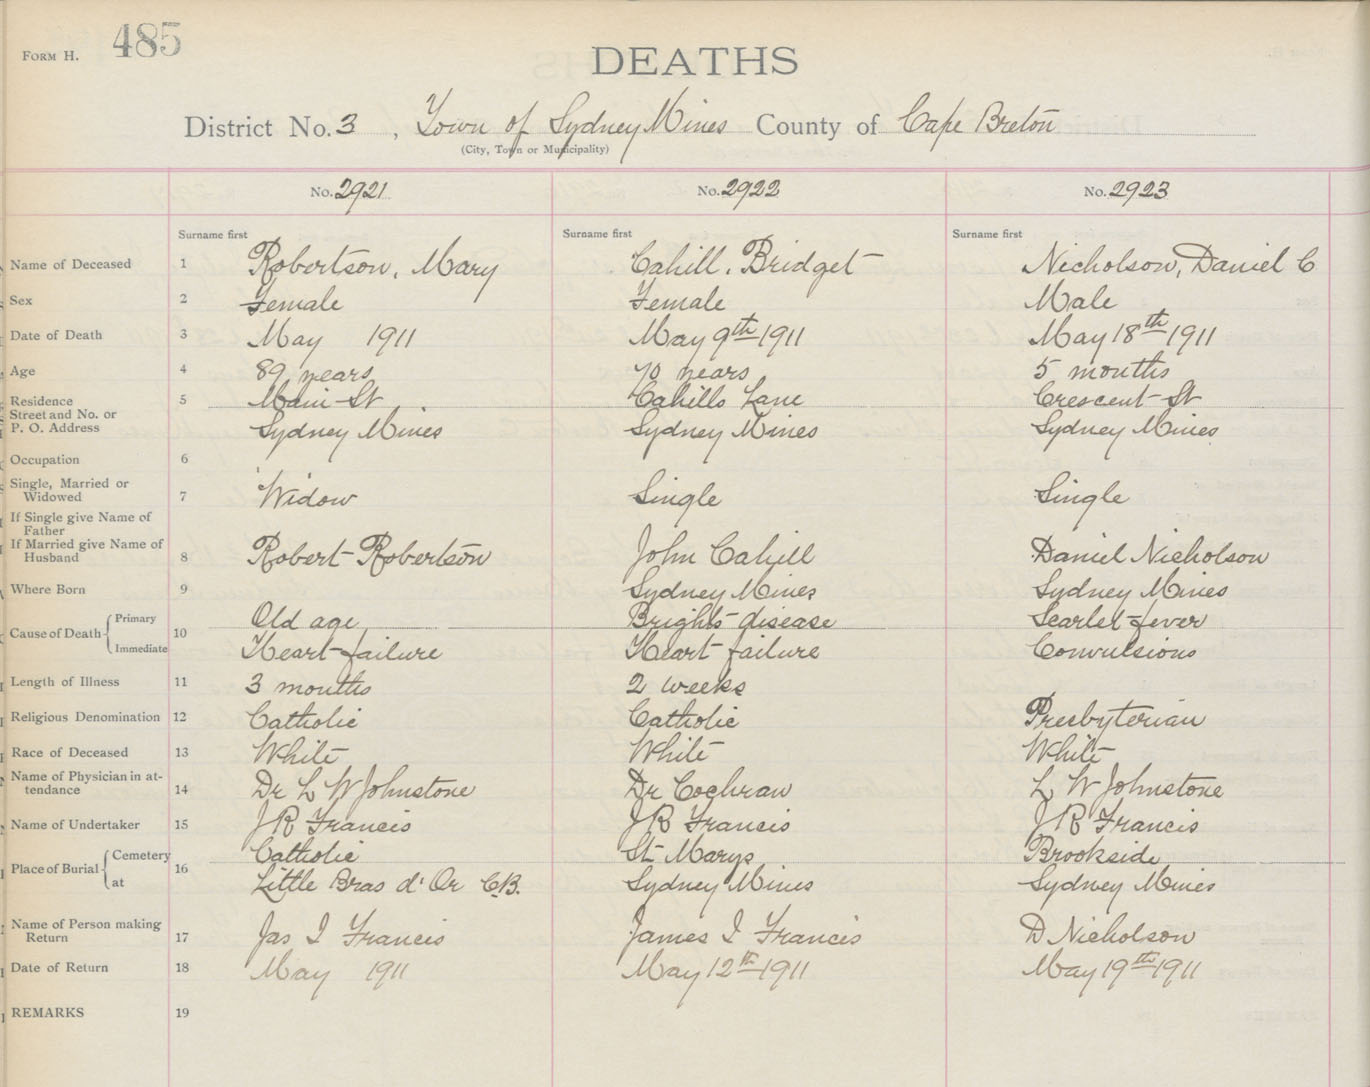 FORM H. 485
DEATHS
District No. 3, Town of Sydney Mines County of Cape Breton
(City, Town or Municipality)
No. 2921 No. 2922 No. 2923
Surname first Surname first Surname first
Name of Deceased 1 Robertson, Mary Cahill, Bridget Nicholson, Daniel C
Sex 2 Female Female Male
Date of Death 3 May 1911 May 9th 1911 May 18th 1911
Age 4 89 years 70 years 5 months
Residence 5 Main St Cahills Lane Crescent St
Street and No. or
P. O. Address Sydney Mines Sydney Mines Sydney Mines
Occupation 6
Single, Married or
Widowed 7 Widow Single Single
If Single give Name of
Father
If Married give Name of
Husband 8 Robert Robertson John Cahill Daniel Nicholson
Where Born 9 Sydney Mines Sydney Mines
Cause of Death { Primary 10 Old age Brights disease Scarlet fever
Immediate Heart failure Heart failure Convulsions
Length of Illness 11 3 months 2 weeks
Religious Denomination 12 Catholic Catholic Presbyterian
Race of Deceased 13 White White White
Name of Physician in at-
tendance 14 Dr L W Johnstone Dr Cochran L W Johnstone
Name of Undertaker 15 J R Francis J R Francis J R Francis
Place of Burial { Cemetery 16 Catholic St Marys Brookside
at Little Bras d'Or C.B. Sydney Mines Sydney Mines
Name of Person making
Return 17 Jas I Francis James I Francis D Nicholson
Date of Return 18 May 1911 May 12th 1911 May 19th 1911
REMARKS 19